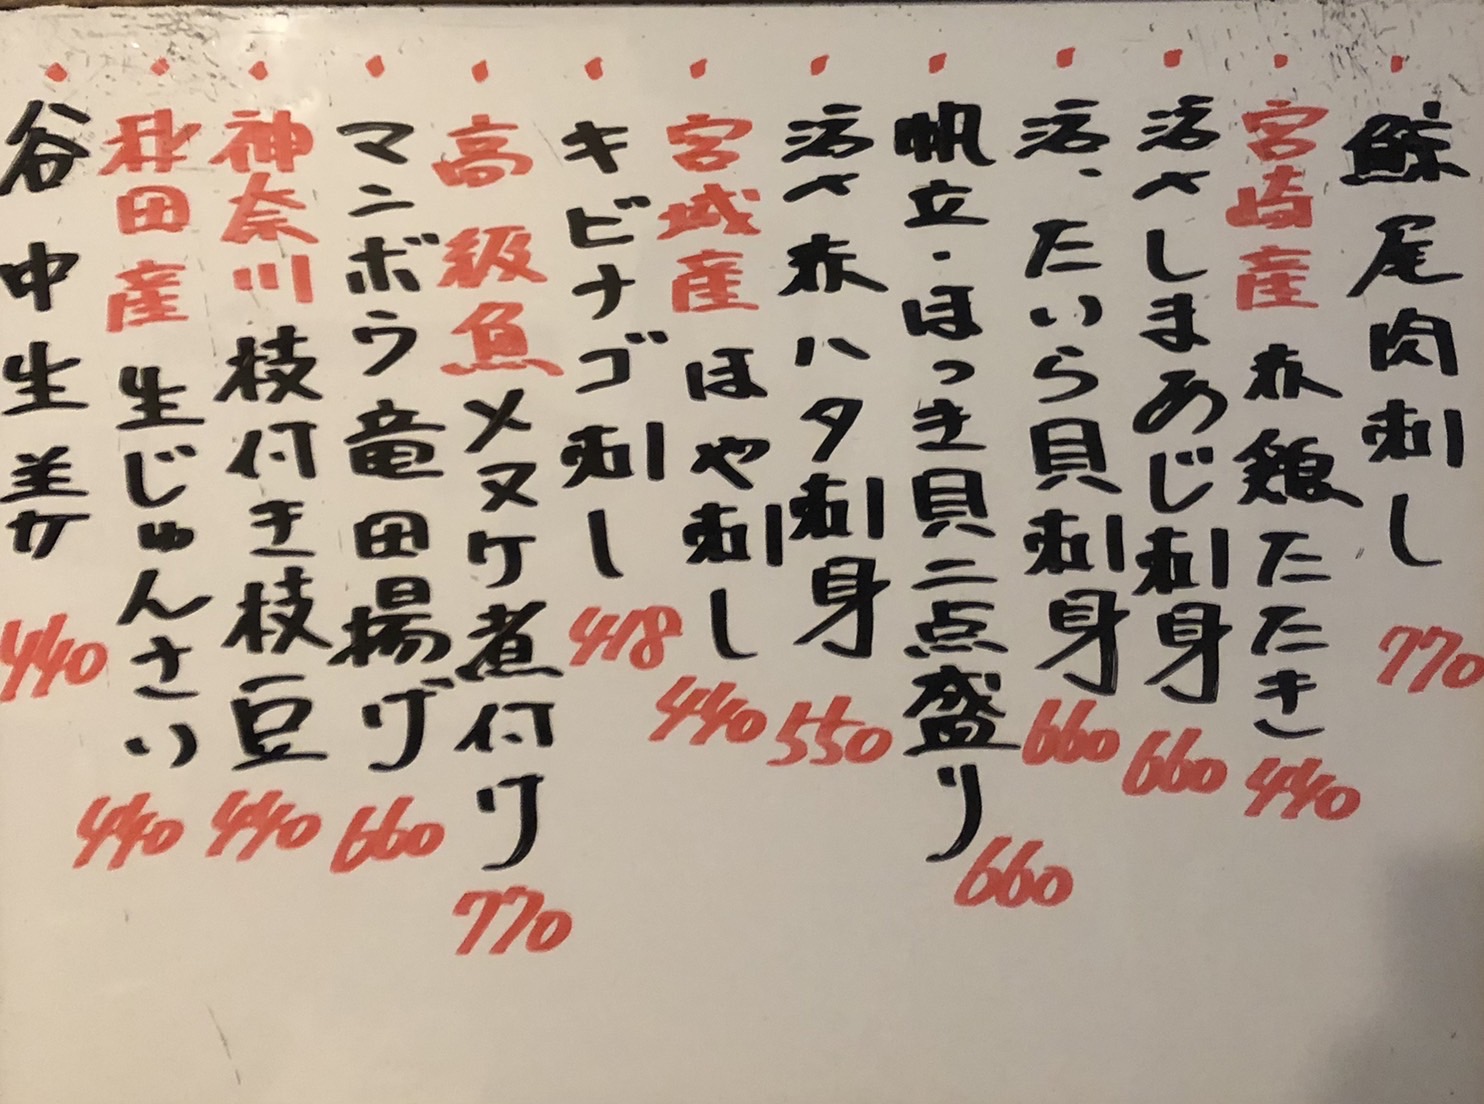 鯨尾肉刺し 770
宮崎産 赤鶏たたき 440
活〆しまあじ刺身 660
活、たいら貝刺身 660
帆立・ほっき貝二点盛り 660
活〆赤ハタ刺身 550
宮城産 ほや刺し 440
キビナゴ刺し 418
高級魚 メヌケ煮付け 770
マンボウ竜田揚げ 660
神奈川 枝付き枝豆 440
秋田産 生じゅんさい 440
谷中生姜 440